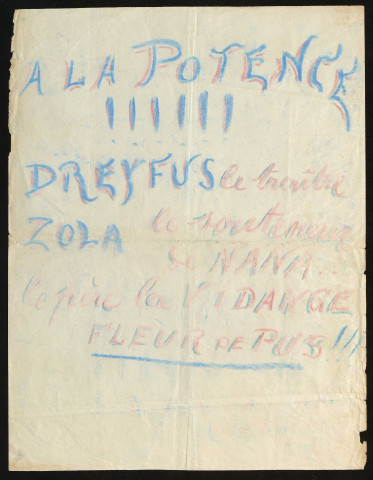 A LA POTENCE
!!!!!!
DREYFUS le traître
ZOLA le souteneur
de NANA..
le père la VIDANGE
FLEUR DE PUS !!!